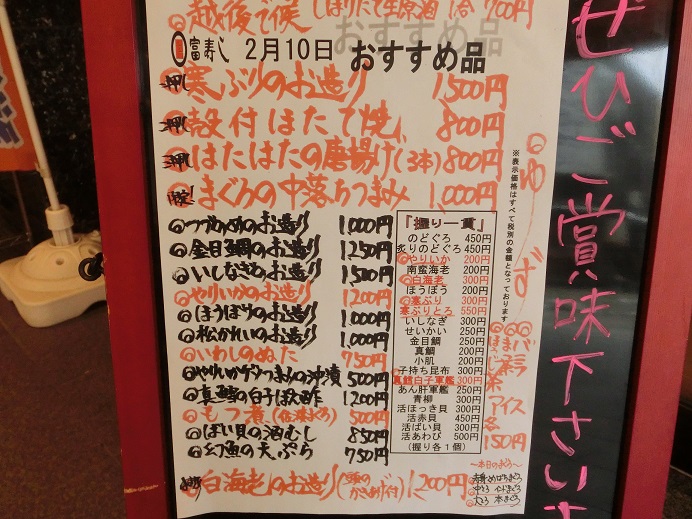 越後で候 しぼりたて生原酒 1合 700円
富寿し 2月10日 おすすめ品
押し 寒ぶりのお造り 1,500円
押し 殻付ほたて焼 800円
押し はたはたの唐揚げ(3本) 800円
まぐろの中落ちつまみ 1,000円
つぶがいのお造り 1.000円
金目鯛のお造り 1250円
いしなぎのお造り 1,500円
やりいかのお造り 1200円
ほうぼうのお造り 1.000円
松かれいのお造り 1.000円
いわしのぬた 750円
やりいかゲソつまみの沖漬 500円
真鱈の白子ぽん酢 1200円
もつ煮(佐渡まぐろ) 500円
ばい貝の酒むし 850円
幻魚の天ぷら 750円
白海老のお造り(頭のからあげ付) 1,200円
「握り一貫」
のどぐろ 450円
炙りのどぐろ 450円
やりいか 200円
南蛮海老 200円
白海老 300円
ほうぼう 200円
寒ぶり 300円
寒ぶりとろ 550円
いしなぎ 300円
せいかい 250円
金目鯛 250円
真鯛 200円
小肌 200円
子持ち昆布 300円
真鱈白子軍艦 300円
あん肝軍艦 250円
青柳 300円
活ほっき貝 300円
活赤貝 450円
活ばい貝 300円
活あわび 500円
(握り各1個)
※表示価格はすべて税別の金額となっております
ゆず
バニラ
ほうじ茶
アイス
各150円
～本日のまぐろ～
赤身 めばちまぐろ
中とろ インドまぐろ
大とろ 本まぐろ
ぜひご賞味下さいま